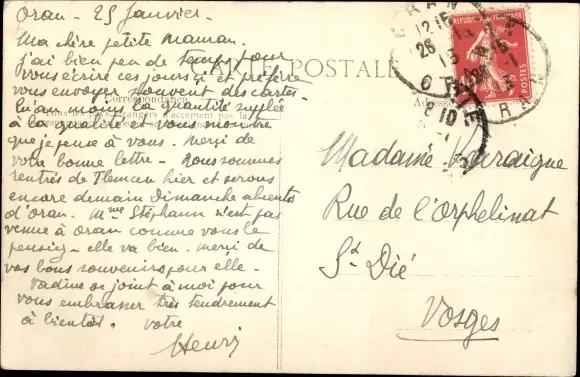 Oran - 25 Janvier.
Ma chère petite Maman.
j'ai bien peu de temps pour
vous écrire ces jours ci et préfère
vous envoyer souvent des cartes.
qu'au moins la quantité supplée
à la qualité et vous montre
que je pense à vous. Merci de
votre bonne lettre - Nous sommes
rentrés de Tlemcen hier et serons
encore demain Dimanche absents
d'Oran. Mme Stéphann n'est pas
venue à Oran comme vous le
pensiez - elle va bien. merci de
vos bons souvenirs pour elle -
se joint à moi pour
vous embrasser très tendrement
à bientôt. votre
Henri
CARTE POSTALE
Correspondance
Tous les pays étrangers n'acceptent pas la
Adresse
REPUBLIQUE FRANÇAISE
ORAN
Madame
Rue de l'Orphelinat
St Dié
Vosges